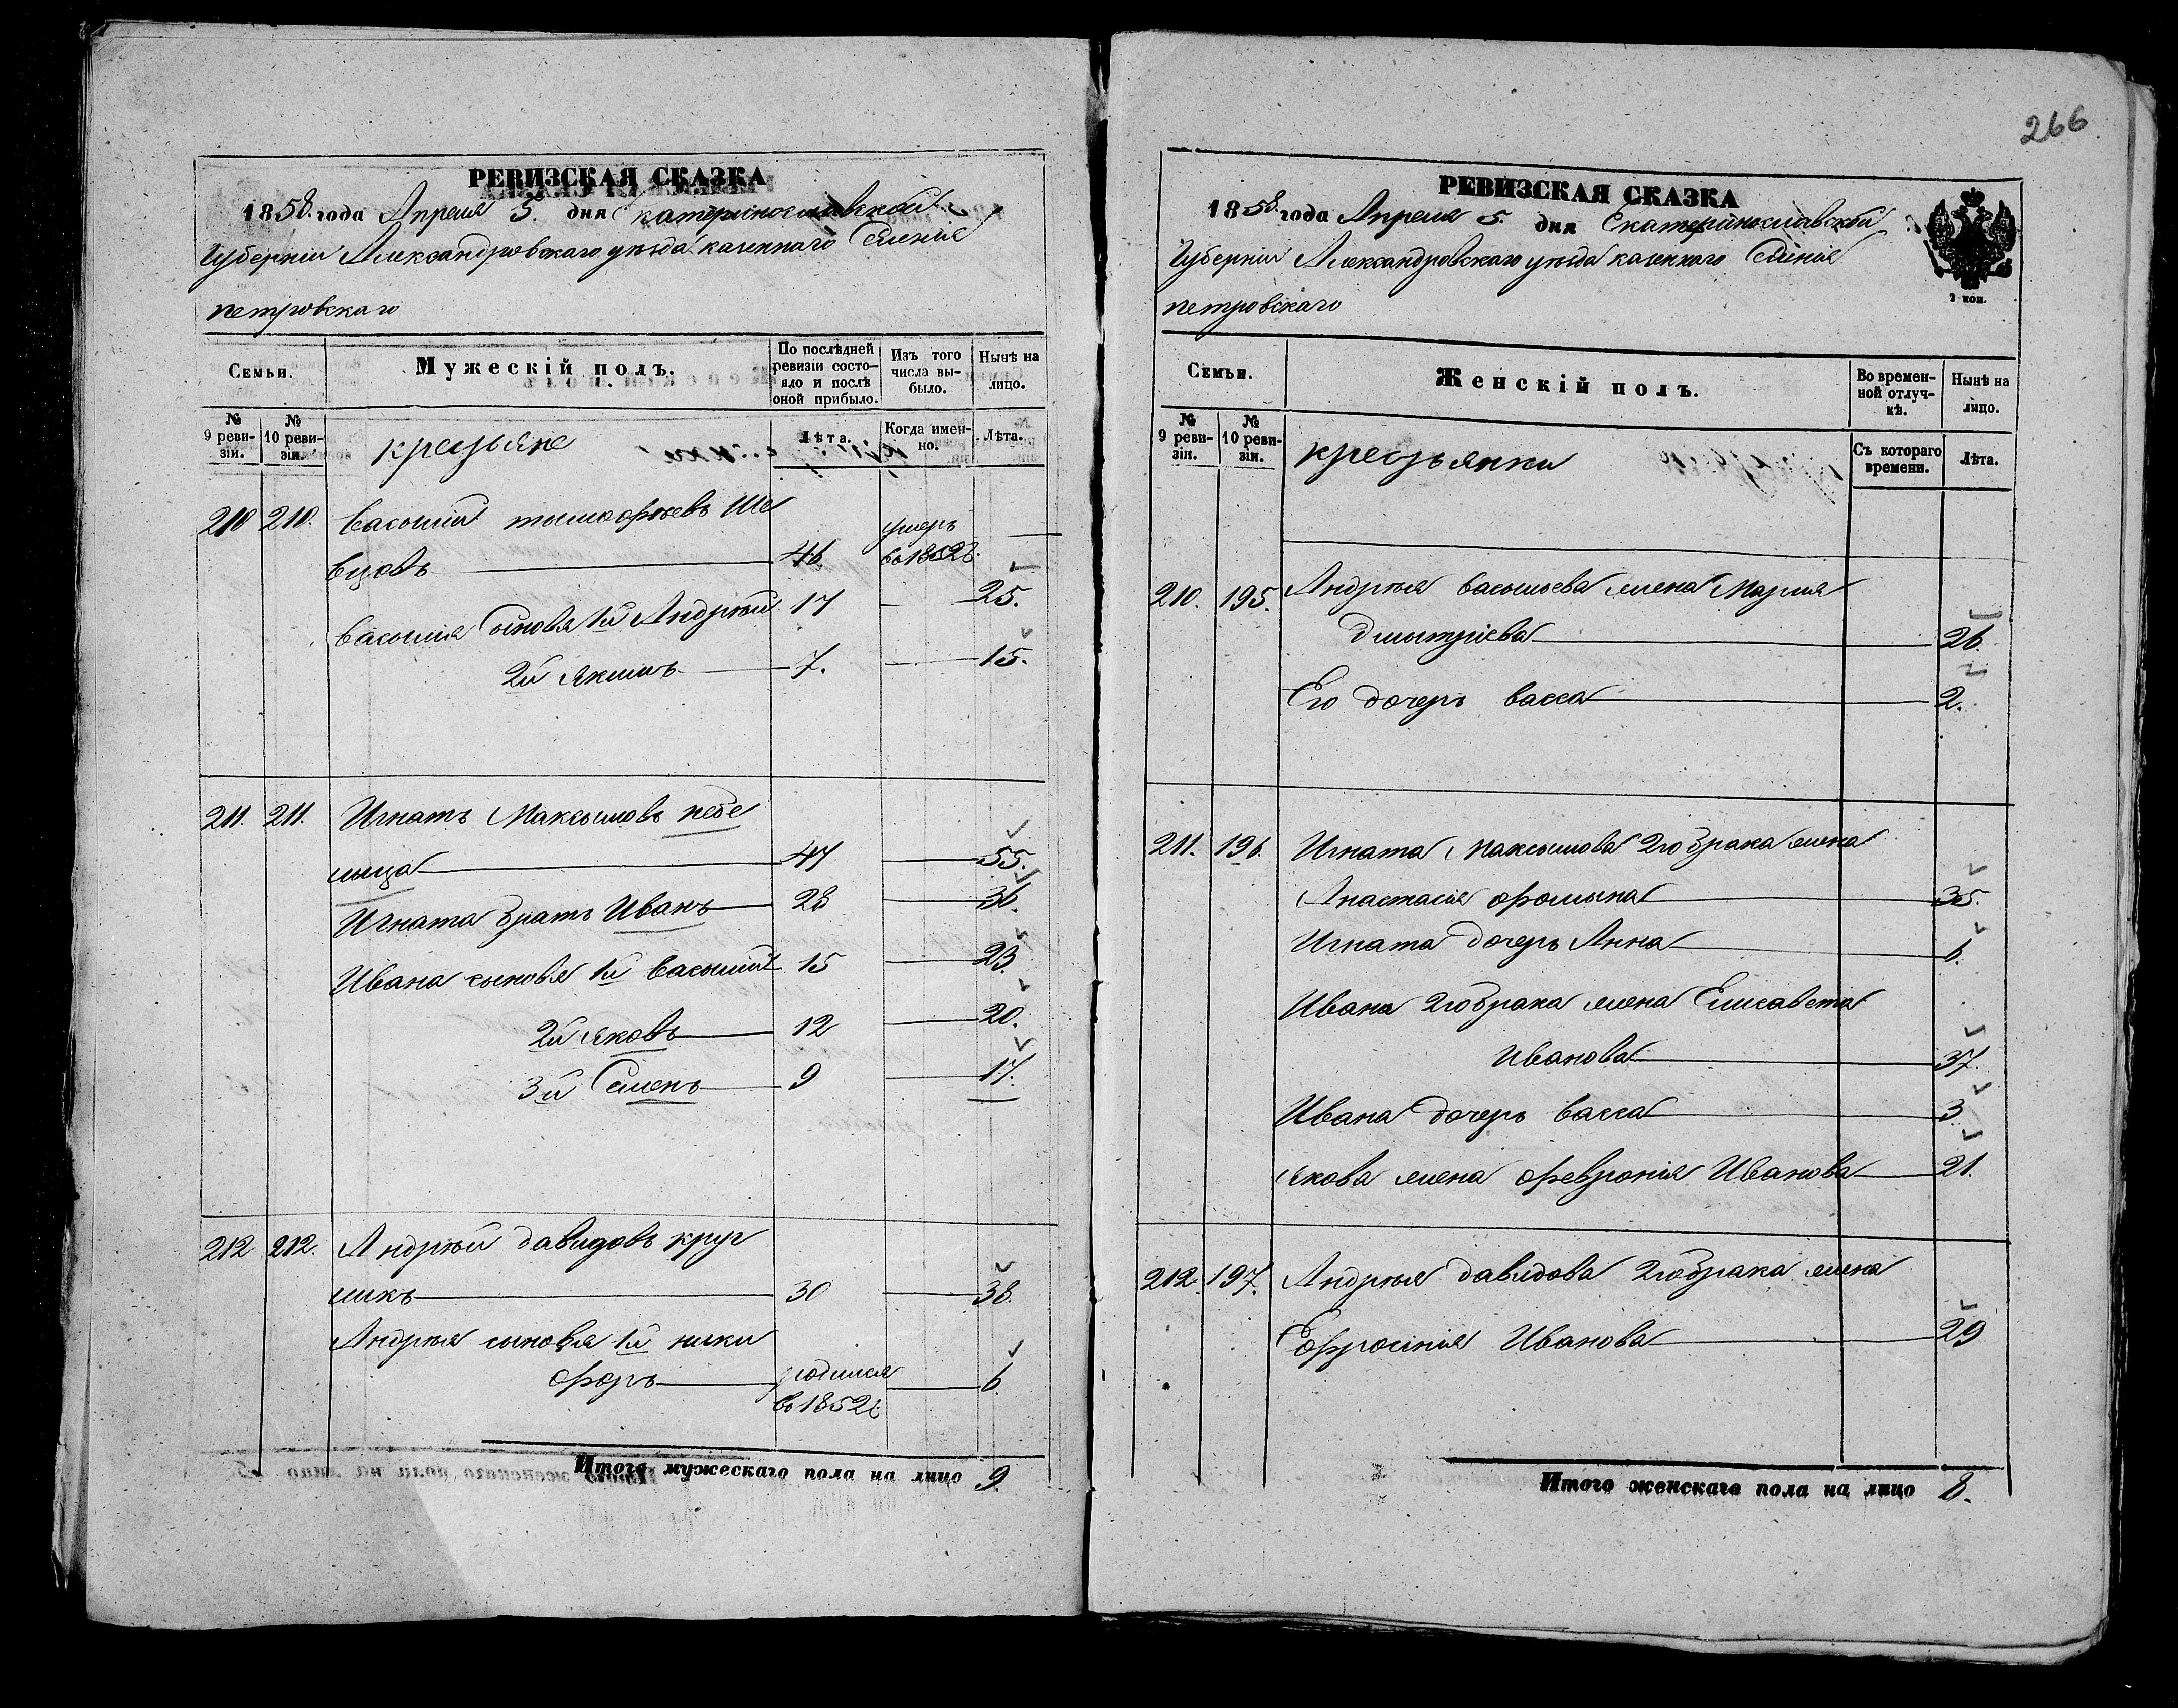 266
РЕВИЗСКАЯ СКАЗКА
1858 года Апреля 5. дня Екатеринославской
Губерніи Александровскаго уезда казеннаго Селенія
петровскаго
Семьи.
Мужескій полъ.
По послѣдней ревизіи состо-яло и послѣ оной прибыло.
Изъ того числа вы-было.
Нынѣ на лицо.
№ 9 реви-зіи.
№ 10 реви-зіи.
крестьяне
Лѣта.
Когда имен-но.
Лѣта.
210 210. Василий тимофѣевъ Ше
вцовъ 46 умеръ въ 1852г.
Василия Сыновья 1й Андрѣй 17 25.
2й Якимъ 7. 15.
211. 211. Игнатъ Максимовъ пере
лыца 47 55.
Игната братъ Иванъ 28 36.
Ивана сыновья 1й Василий 15 23.
2й Яковъ 12 20.
3й Семенъ 9 17.
212 212. Андрѣй давидовъ круг
ликъ 30 38.
Андрѣя сыновья 1й ники
форъ родился въ 1852г. 6
Итого мужескаго пола на лицо 9.
РЕВИЗСКАЯ СКАЗКА
1858. года Апреля 5. дня Екатеринославской
Губерніи Александровскаго уезда казеннаго Селенія
петровскаго
2 коп.
Семьи.
Женскій полъ.
Во времен-ной отлуч-кѣ.
Нынѣ на лицо.
№ 9 реви-зіи.
№ 10 реви-зіи.
крестьянки
Съ котораго времени.
Лѣта.
210. 195. Андрѣя васильева жена Мария
Дмитріева 26.
Его дочерь васса 2.
211. 196. Игната Максимова 2го брака жена
Анастасия фомина 35.
Игната дочерь Анна 6.
Ивана 2го брака жена Елисавета
Иванова 37.
Ивана дочерь васса 3
Якова жена февронія Иванова 21.
212. 197. Андрѣя давидова 2го брака жена
Ефросінія Иванова 29
Итого женскаго пола на лицо 8.